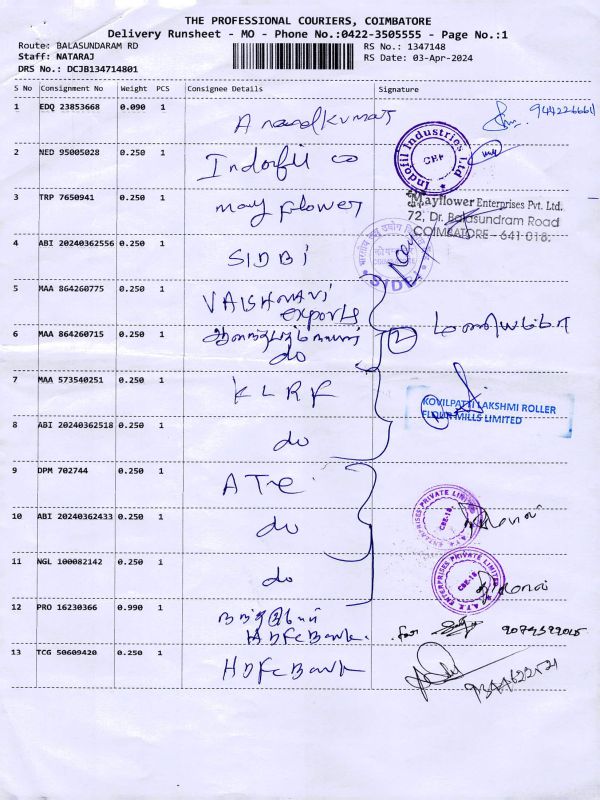 THE PROFESSIONAL COURIERS, COIMBATORE
Delivery Runsheet - MO - Phone No.:0422-3505555 - Page No.:1
Route: BALASUNDARAM RD
RS No.: 1347148
Staff: NATARAJ
RS Date: 03-Apr-2024
DRS No.: DCJB134714801
S No Consignment No Weight PCS Consignee Details Signature
1 EDQ 23853668 0.090 1 Anandkumar
2 NED 95005028 0.250 1 Indofil co
Indofil Industries Ltd
CBE
3 TRP 7650941 0.250 1 may flower
Mayflower Enterprises Pvt. Ltd.
72, Dr. Balasundram Road
COIMBATORE - 641 018.
4 ABI 20240362556 0.250 1 SIDBI
SIDBI
5 MAA 864260775 0.250 1 VAISHNAVI exports
6 MAA 864260715 0.250 1
do
2
7 MAA 573540251 0.250 1 KLRF
KOVILPATTI LAKSHMI ROLLER
FLOUR MILLS LIMITED
8 ABI 20240362518 0.250 1 do
9 DPM 702744 0.250 1 ATE
10 ABI 20240362433 0.250 1 do
A.T.E. ENTERPRISES PRIVATE LIMITED
CBE-18
11 NGL 100082142 0.250 1 do
A.T.E. ENTERPRISES PRIVATE LIMITED
CBE-18
12 PRO 16230366 0.990 1
HDFC Bank.
for
13 TCG 50609420 0.250 1 HDFC Bank